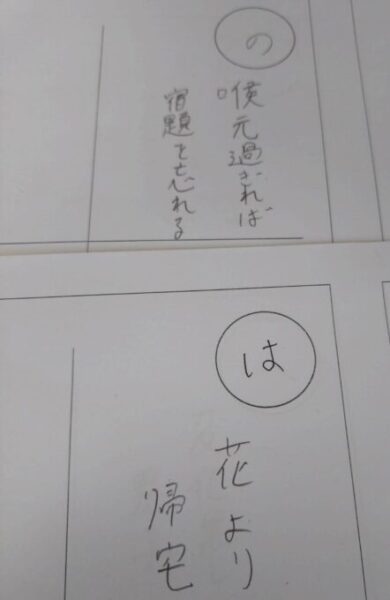 の
喉元過ぎれば
宿題を忘れる
は
花より
帰宅